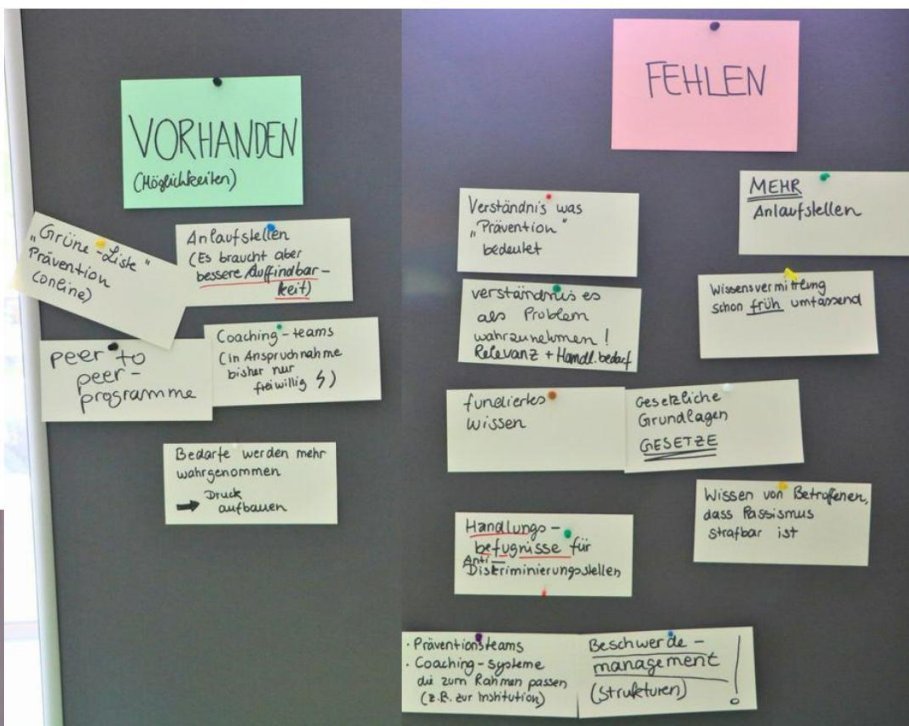 VORHANDEN
(Möglichkeiten)
"Grüne-Liste"
Prävention
(online)
Anlaufstellen
(Es braucht aber
bessere Auffindbar-
keit)
peer to
peer-
programme
Coaching-teams
(in Anspruchnahme
bisher nur
freiwillig ϟ)
Bedarfe werden mehr
wahrgenommen
➡ Druck
aufbauen
FEHLEN
Verständnis was
"Prävention"
bedeutet
MEHR
Anlaufstellen
verständnis es
als Problem
wahrzunehmen!
Relevanz + Handl.bedarf
Wissensvermittlung
schon früh umfassend
fundiertes
wissen
Gesetzliche
Grundlagen
GESETZE
Wissen von Betroffenen,
dass Rassismus
strafbar ist
Handlungs-
befugnisse für
Anti-
Diskriminierungsstellen
· Präventionsteams
· Coaching-systeme
die zum Rahmen passen
(z.B. zur Institution)
Beschwerde-
management
(strukturen) !